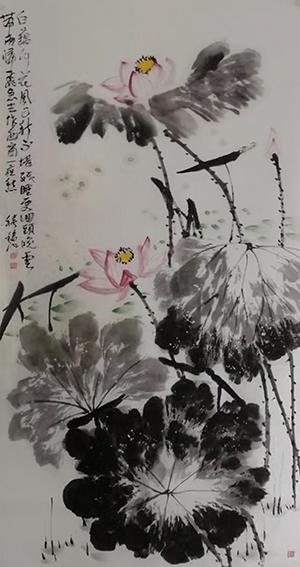 白藕作花風已秋不堪殘睡更迴頭晚雲
帶雨歸飛急去作西窗